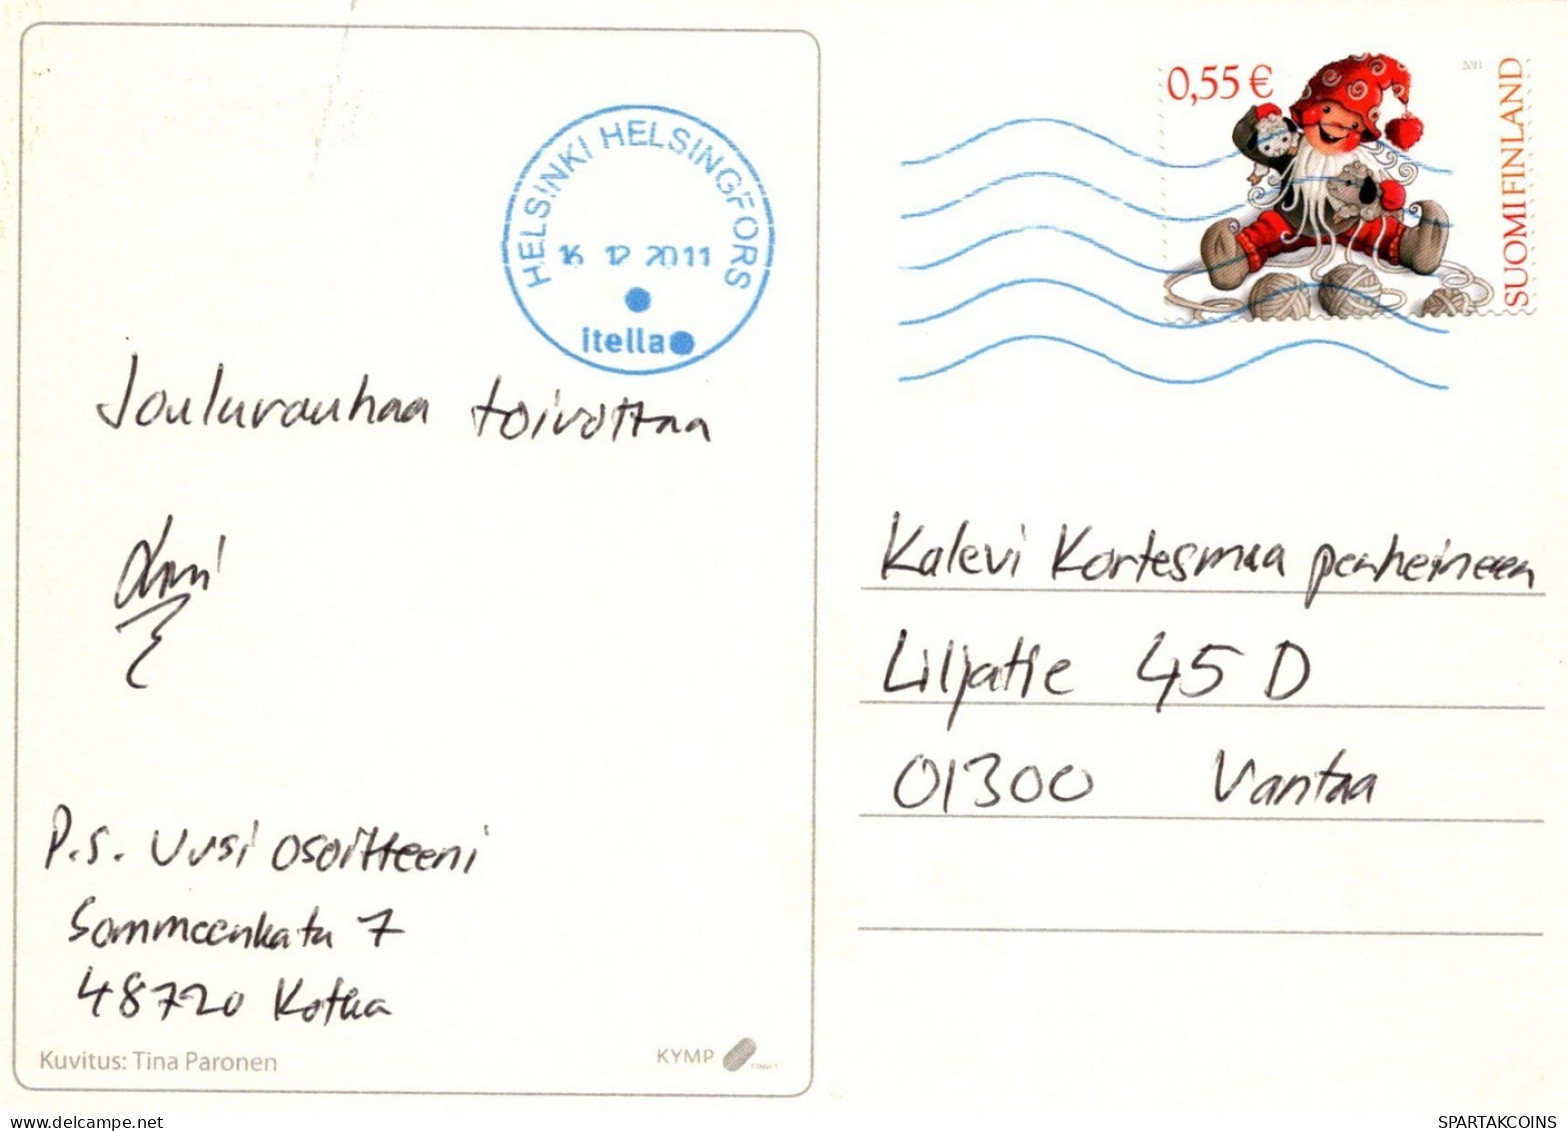 HELSINKI HELSINGFORS
16 12 2011
itella
0,55 €
2011
SUOMI FINLAND
Joulurauhaa toivottaa
Kalevi Kortesmaa perheineen
Liljatie 45 D
01300 Vantaa
P.S. Uusi osoitteeni
Sammeenkatu 7
48720 Kotka
Kuvitus: Tina Paronen
KYMP
FINNET
SPARTAKCOINS